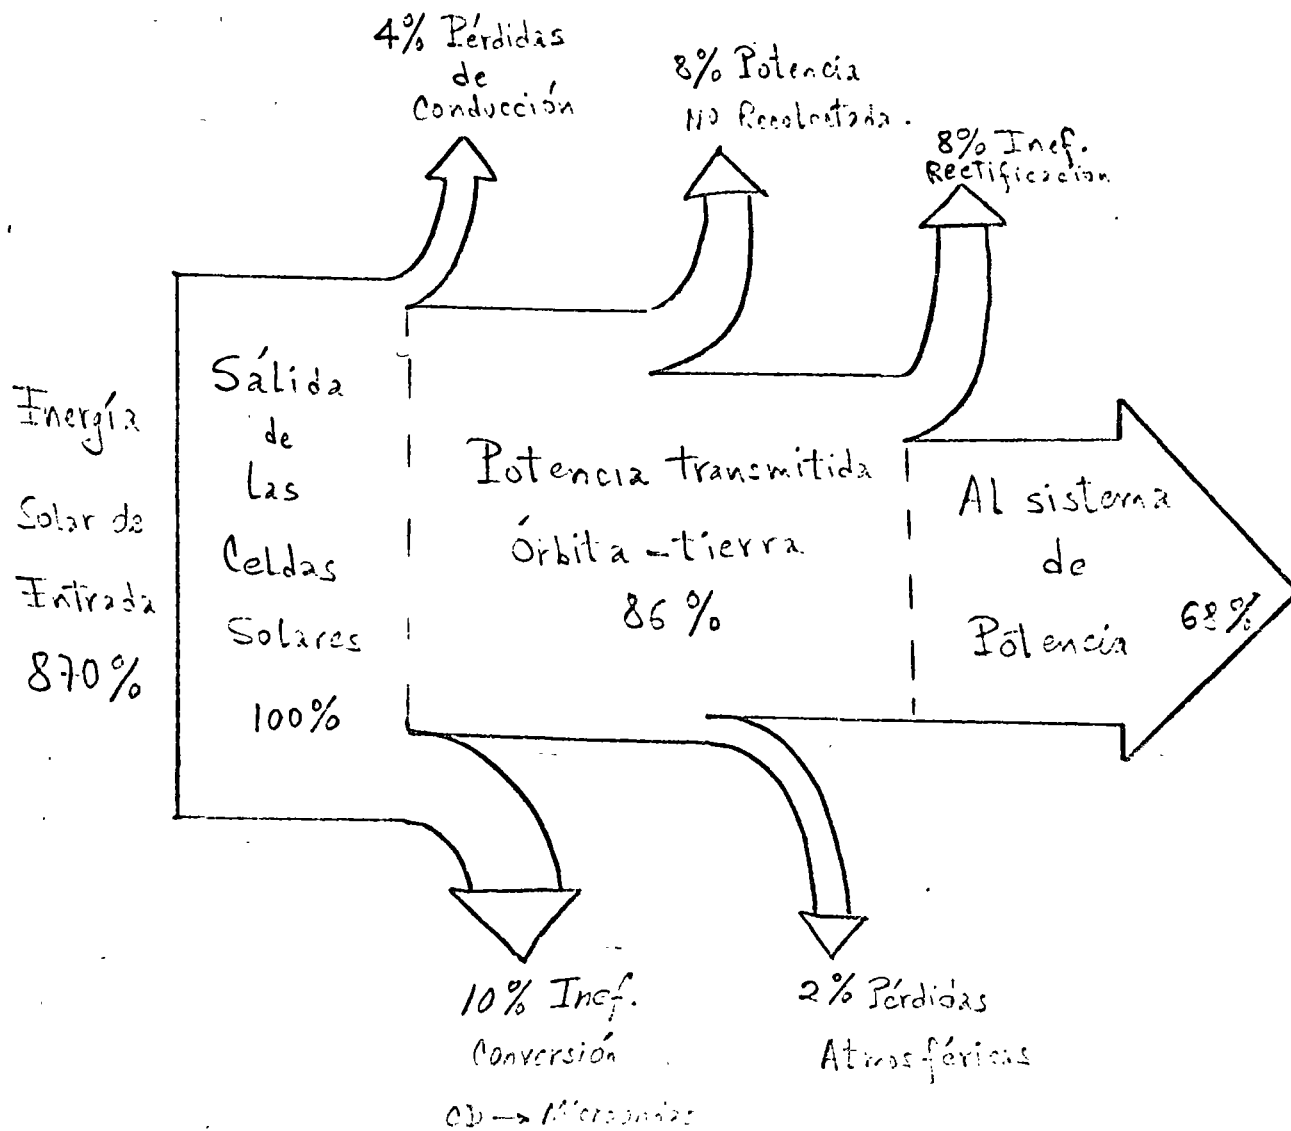 4% Pérdidas
de
Conducción
8% Potencia
No Recolectada.
8% Inef.
Rectificación
Energía
Solar de
Entrada
870%
Sálida
de
las
Celdas
Solares
100%
Potencia transmitida
Órbita - tierra
86%
Al sistema
de
Potencia 68%
10% Inef.
Conversión
CD → Microondas
2% Pérdidas
Atmosféricas